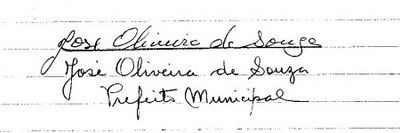 José Oliveira de Souza
José Oliveira de Souza
Prefeito Municipal